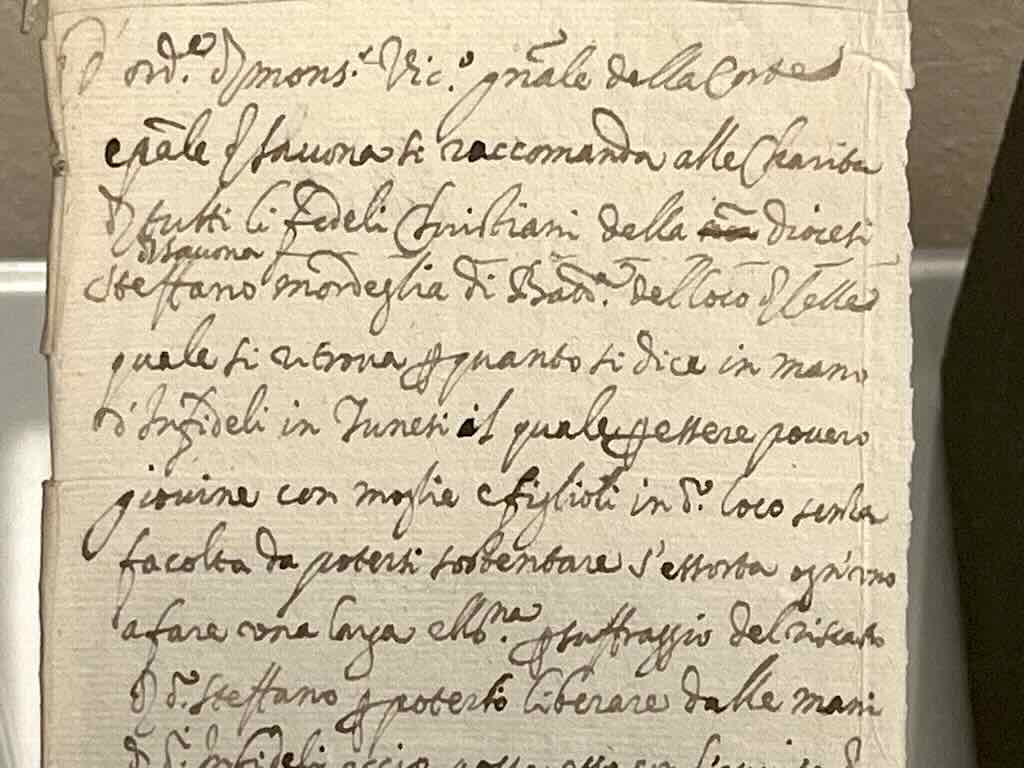 D' ord.e di mons.r Vic.o gñale della Corte
epãle di Sauona si raccomanda alle Charita
di tutti li Fedeli Christiani della diocesi
di Sauona
Steffano mordeglia di Batt.a del loco di Celle
quale si ritroua per quanto si dice in mano
d'Infideli in Tunesi il quale per essere pouero
giouine con moglie e figlioli in d.o loco senza
facolta da potersi sostentare s'essorta ogn'uno
a fare una larga ellos.na per suffraggio del riscatto
di d.o Steffano per poterlo liberare dalle mani
di d.i Infideli accio